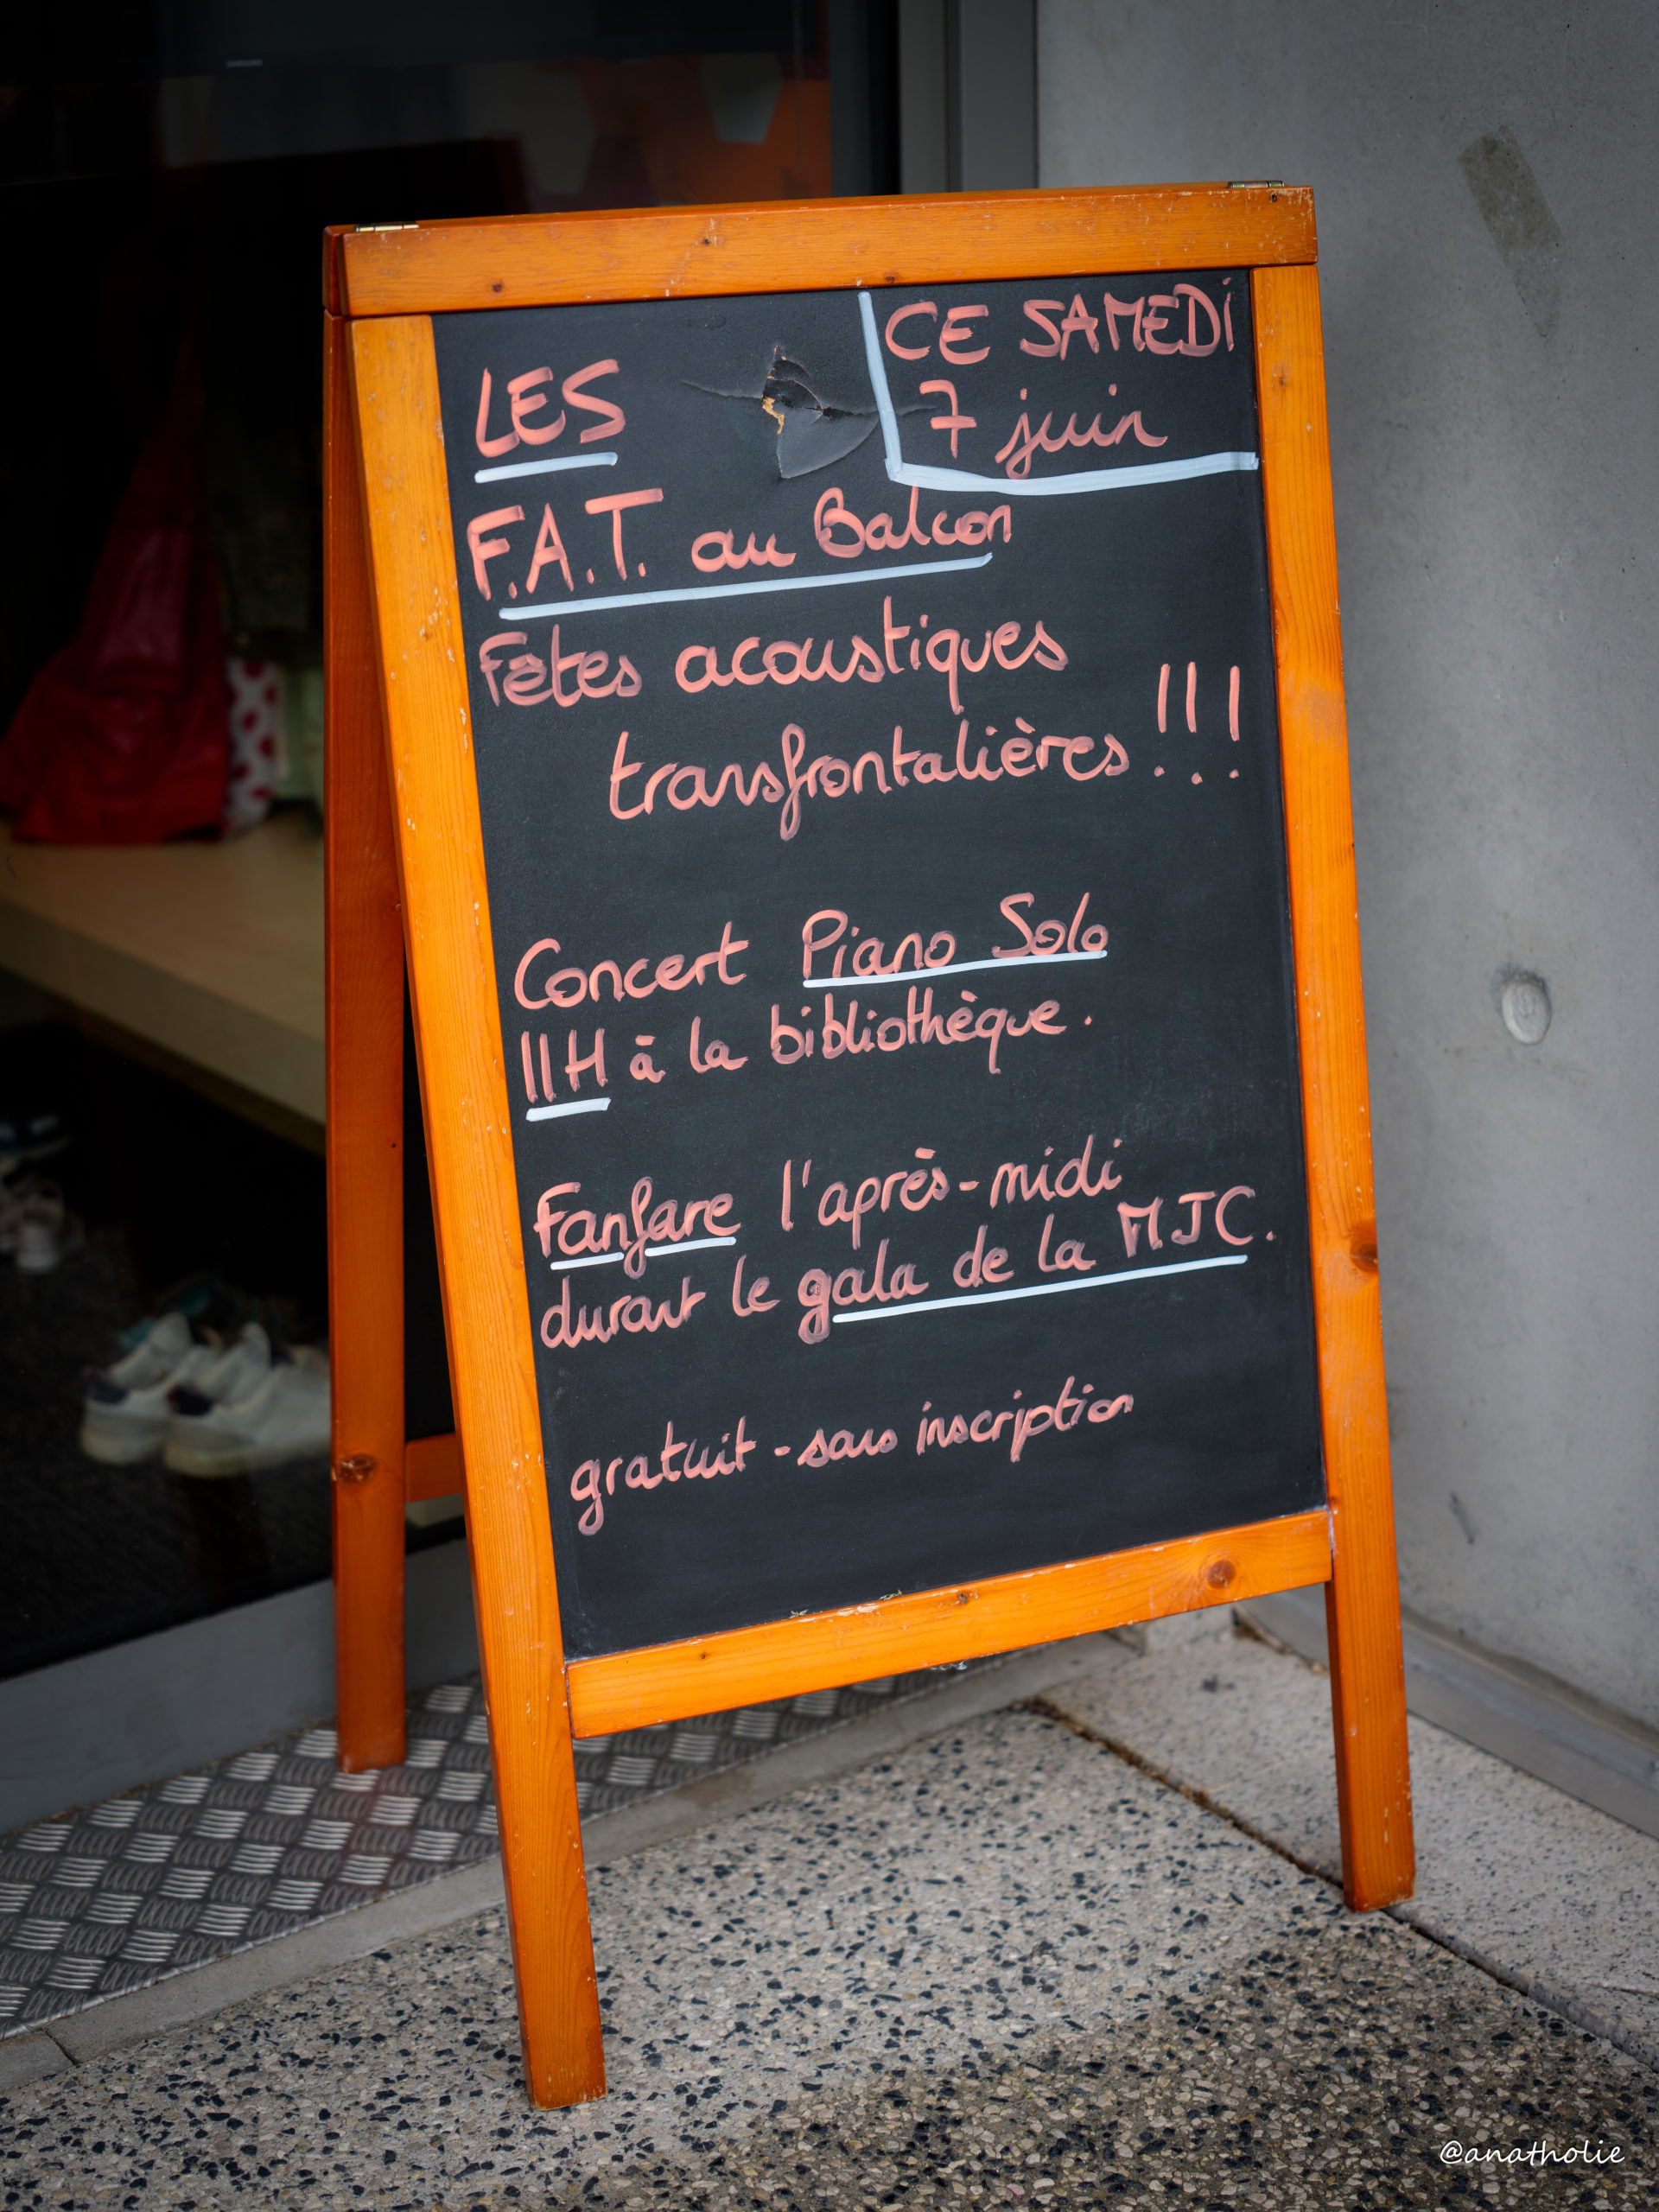 CE SAMEDI
7 juin
LES
F.A.T. au Balcon
Fêtes acoustiques
transfrontalières !!!
Concert Piano Solo
11H à la bibliothèque.
Fanfare l'après-midi
durant le gala de la MJC.
gratuit - sans inscription
SAMSUNG
@anatholie